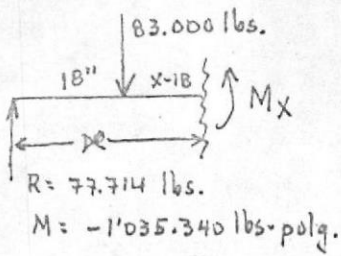 83.000 lbs.
18" X-18
Mx
X
R = 77.714 lbs.
M = -1'035.340 lbs-pulg.